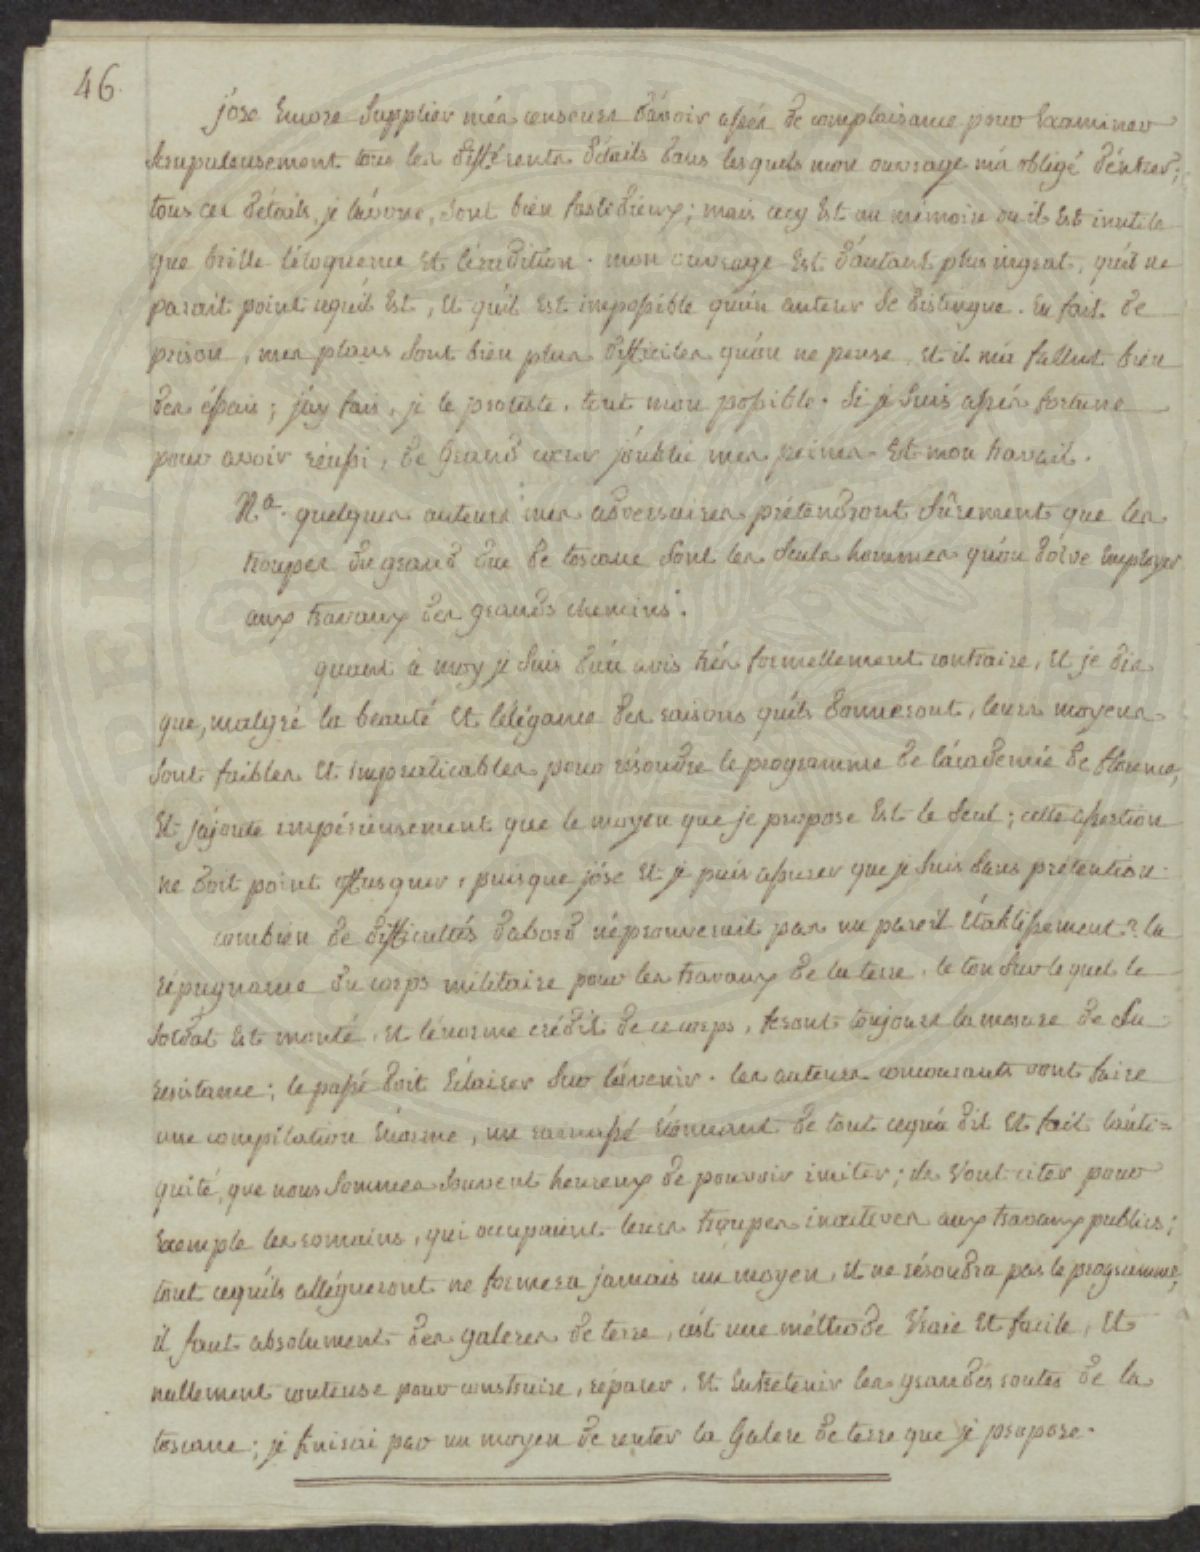 46.
j'ose Encore Supplier més censeurs d'avoir assés de complaisance pour Examiner
scrupuleusement tous les différents détails dans lesquels mon ouvrage m'a obligé d'entrer;
tous ces détails, je l'avoue, sont bien fastidieux; mais cecy Est un mémoire ou il Est inutile
que brille l'éloquence Et l'érudition. mon ouvrage Est d'autant plus ingrat, qu'il ne
parait point cequ'il Est, Et qu'il Est impossible qu'un auteur se distingue. En fait de
prison, mes plans sont bien plus difficiles qu'on ne pense, Et il m'a fallut bien
des éssais; j'ay fais, je le proteste, tout mon possible. Si je suis assés fortuné
pour avoir réussi, de grand cœur j'oublie mes peines Et mon travail.
Na. quelques auteurs mes adversaires prétendront sûrement que les
troupes du grand duc de toscane sont les seuls hommes qu'on doive Employer
aux travaux des grands chemins.
quant à moy je suis d'un avis trés formellement contraire, Et je dis
que, malgré la beauté Et l'élégance des raisons qu'ils donneront, leurs moyens
sont faibles Et impraticables pour résoudre le programme de l'academie de florence,
Et j'ajoute impérieusement que le moyen que je propose Est le seul; cette assertion
ne doit point offusquer, puisque j'ose Et je puis assurer que je suis sans prétention.
combien de difficultés d'abord n'éprouverait pas un pareil Etablissement? la
répugnance du corps militaire pour les travaux de la terre, le ton sur lequel le
soldat Est monté, Et l'énorme crédit de ce corps, seront toujours la mesure de sa
résistance; le passé doit Eclairer sur l'avenir. les auteurs concourants vont faire
une compilation Enorme, un ramassé Etonnant de tout cequ'a dit Et fait l'anti=
quité, que nous sommes souvent heureux de pouvoir imiter; ils vont citer pour
Exemple les romains, qui occupaient leurs troupes inactives aux travaux publics;
tout cequ'ils allégueront ne formera jamais un moyen, Et ne résoudra pas le programme;
il faut absolument des galeres de terre, c'est une méthode Vraie Et facile, Et
nullement couteuse pour construire, réparer, Et Entretenir les grandes routes de la
toscane; je finirai par un moyen de renter la Galere de terre que je propose.